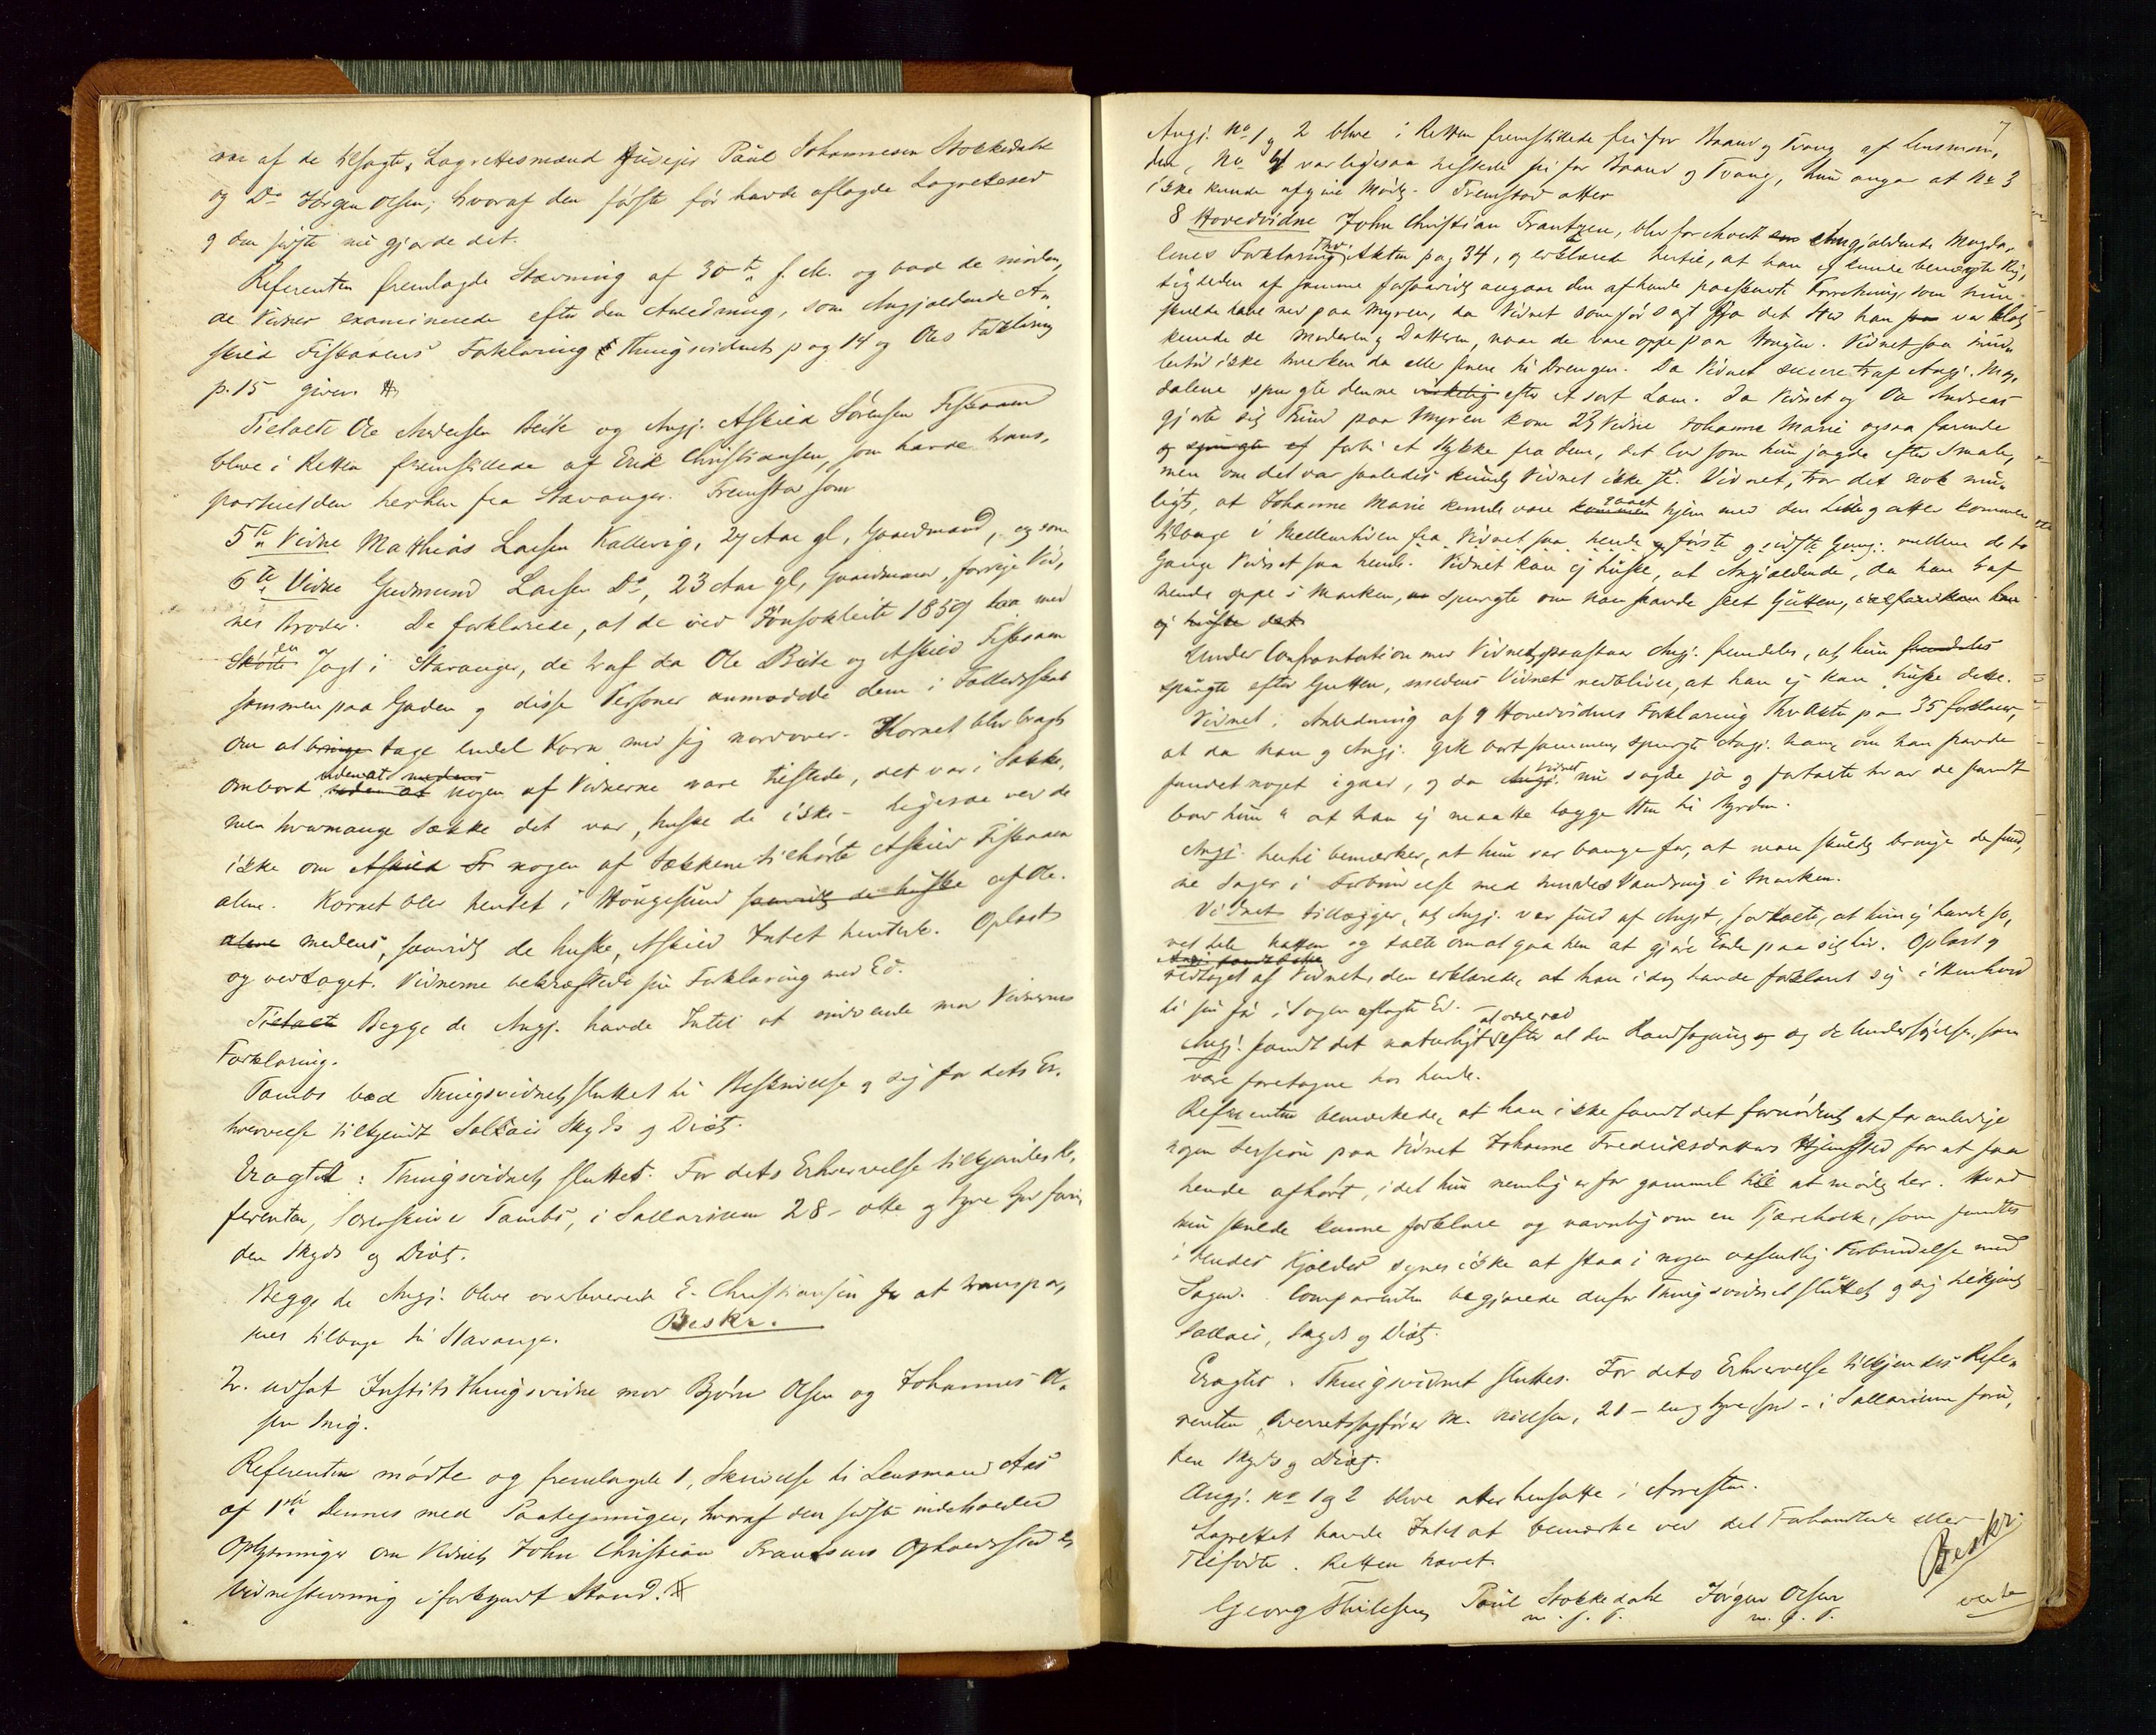 var af de tilsagte Lagrettesmænd Husejer Paul Johannesen Stokkedalt
og Do Jørgen Olsen; hvoraf den første før havde aflagde Lagretteeed
og den sidste nu gjorde det.
Referenten fremlagde Stævning af 30te f. M. og bad de mødende
Vidner examinerede efter den Anledning, som Angjældende As-
kild Fiskaaens Forklaring Thingsvidnets pag 14 og Oles Forklaring
p. 15 giver.
Tiltalte Ole Andersen Beite og Angj. Askild Sørensen Fiskaaen
bleve i Retten fremstillede af Erik Christiansen, som havde trans-
porteret den herhen fra Stavanger. Fremstod som
5te Vidne Matthias Larsen Kallevig, 27 Aar gl, Gaardmand, og som
6te Vidne Gudmund Larsen Do, 23 Aar gl, Gaardmand, forrige Vid-
nes Broder. De forklarede, at de ved Jonsokleite 1859 laa med
en Jagt i Stavanger, de traf da Ole Beite og Askild Fiskaaen
sammen paa Gaden og disse Personer anmodede dem i Fælledsskab
om at bringe tage endel Korn med sig nordover. Kornet blev bragt
ombord uden at nogen af Vidnerne vare tilstede, det var i Sække,
men hvormange Sække det var, huske de ikke - ligesaa ved de
ikke om Askild F nogen af Sækkene tilhørte Askild Fiskaaen
alene. Kornet blev hentet i Høugesund saavidt de huske af Ole
alene medens, saavidt de huske, Askild Intet hentede. Oplæst
og vedtaget. Vidnerne bekræftede sin Forklaring med Ed.
Tiltalte Begge de Angj. havde Intet at indvende mod Vidnernes
Forklaring.
Tambs bad Thingsvidnet sluttet til Beskrivelse og sig for dets Er-
hvervelse tilkjendt Sallair Skyds og Diæt.
Eragtet: Thingsvidnet sluttet. For dets Erhvervelse tilkjendes Re-
ferenten, Sorenskriver Tambs, i Sallarium 28 - otte og tyve Spd foru-
den Skyds og Diæt.
Begge de Angj. bleve overleverede E. Christiansen for at transpor-
teres tilbage til Stavanger. Beskr.
2. udsat Justits Thingsvidne mod Bjørn Olsen og Johannes Ol-
sen Snig.
Referenten mødte og fremlagde 1, Skrivelse til Lensmand Aas
af 1ste Dennes med Paategninger, hvoraf den sidste indeholder
Oplysninger om Vidnet John Christian Frantzens Opholdssted
Vidnestævning i forkyndt Stand.
7
Angj. No 1 og 2 bleve i Retten fremstillede fri for Baand og Tvang af Lensman-
den, No 4 var ligesaa tilstede fri for Baand og Tvang, hun angav at No 3
ikke kunde afgive Møde. Fremstod atter
8 Hovedvidne John Christian Frantzen, blev foreholdt Angjældende Magda-
lenes Forklaring Thv. Akten pag 34, og erklærede hertil, at han ej kunde benægte Rig-
tigheden af samme forsaavidt angaar den af hende paastaaede Forretning, som hun
skulde have ned paa Myren, da Vidnet som før sagt fra det Sted han var blot
kunde se Moderen og Datteren, naar de vare oppe paa Haugen. Vidnet saa imid-
lertid ikke hverken da eller senere til Drengen. Da Vidnet senere traf Angj. Mag-
dalene spurgte denne virkelig efter et sort Lam. Da Vidnet og Ole Andreas
gjorde sig Fund paa Myren kom 23 Vidne Johanne Marie ogsaa farende
og spurgte ef forbi et Stykke fra dem, det lod som hun jagde efter Smale,
men om det var saaledes kunde Vidnet ikke se. Vidnet, tror det nok mu-
ligt, at Johanne Marie kunde være kommen gaaet hjem med den Lille og atter kommen
tilbage i Mellemtiden fra Vidnet saa hende første og sidste Gang mellem de to
Gange Vidnet saa hende. Vidnet kan ej huske, at Angjældende, da han traf
hende oppe i Marken, spurgte om han havde seet Gutten,
ej huske det
Under Confrontation med Vidnet paastaar Angj. fremdeles, at hun fremdeles
spurgte efter Gutten, medens Vidnet vedbliver, at han ej kan huske dette.
Vidnet i Anledning af 9 Hovedvidnes Forklaring Thv Akten pag 35 forklarer,
at da han og Angj. gik bort sammen, spurgte Angj. ham, om han havde
fundet noget igaar, og da Vidnet nu sagde ja og fortalte hvad de fandt
bad hun "at han ej maatte lægge Sten til Byrden.
Angj. hertil bemærker, at hun var bange for, at man skulde bringe de fund-
ne Sager i Forbindelse med hendes Vandring i Marken.
Vidnet tillægger, at Angj. var fuld af Angst, fortalte, at hun ej havde so-
vet hele Natten og talte om at gaa hen at gjøre Ende paa sit Liv. Oplæst og
vedtaget af Vidnet, der erklærede, at han idag havde forklaret sig i Henhold
til sin før i Sagen aflagte Ed.
Angj. fandt det naturligt efter al den Randsagning og de Undersøgelser, som
vare foretagne hos hende.
Referenten bemærkede, at han ikke fandt det fornødent at foranledige
nogen Session paa Vidnet Johanne Fredriksdatters Hjemsted for at faa
hende afhørt, idet hun nemlig er for gammel til at møde her. Hvad
hun skulde kunne forklare og navnlig om en Tjæreholk, som fandtes
i hendes Kjælder synes ikke at staa i nogen væsentlig Forbindelse med
Sagen. Comparenten begjærede derfor Thingsvidnet sluttet og sig tilkjendt
Sallair, Skyds og Diæt.
Eragtet. Thingsvidnet sluttes. For dets Erhvervelse tilkjendes Refe-
renten, Overretssagfører M. Nielsen, 21 - en og tyve Spd - i Sallarium foru-
den Skyds og Diæt.
Angj. No 1 og 2 bleve atter hensatte i Arresten.
Lagrettet havde Intet at bemærke ved det Forhandlede eller
Tilførte. Retten hævet. Beskr.
Georg Thilesen Paul Stokkedalt Jørgen Olsen
m. f. P. m. f. P.